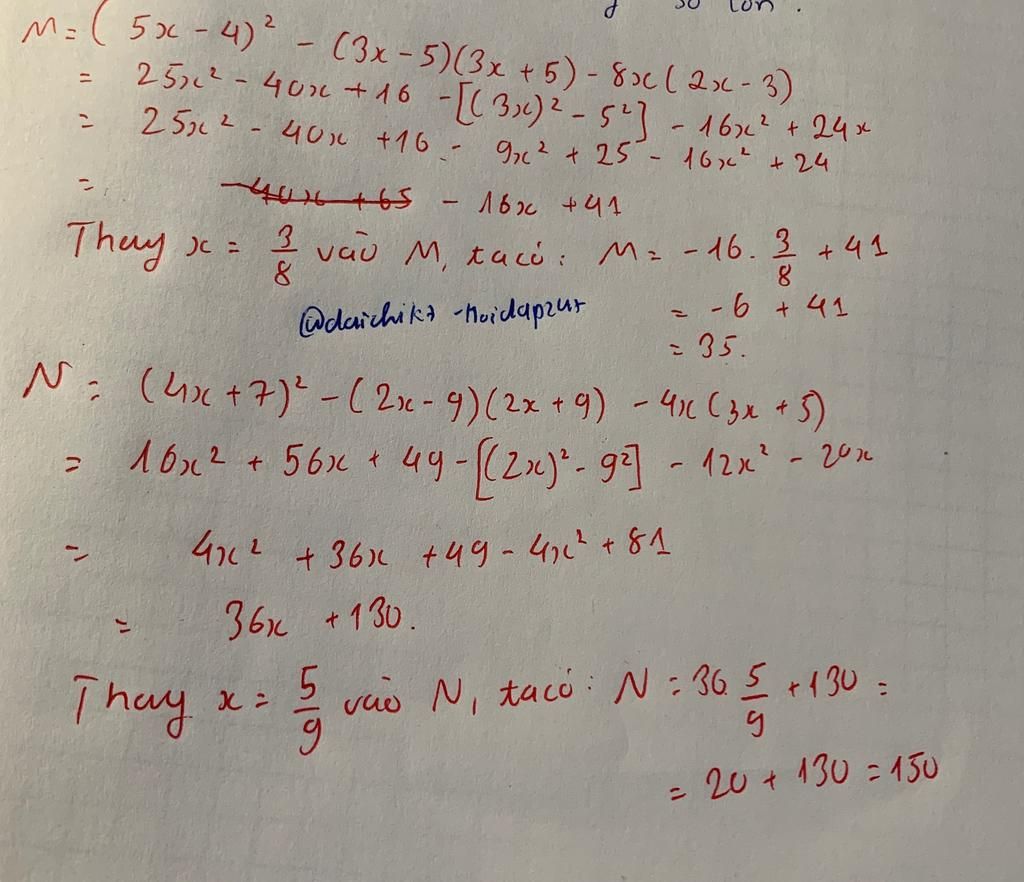 số lớn.
M = (5x - 4)² - (3x - 5)(3x + 5) - 8x(2x - 3)
= 25x² - 40x + 16 - [(3x)² - 5²] - 16x² + 24x
= 25x² - 40x + 16 - 9x² + 25 - 16x² + 24
= -40x + 65 - 16x + 41
Thay x = 3/8 vào M, ta có: M = -16. 3/8 + 41
= -6 + 41
= 35.
N = (4x + 7)² - (2x - 9)(2x + 9) - 4x(3x + 5)
= 16x² + 56x + 49 - [(2x)² - 9²] - 12x² - 20x
= 4x² + 36x + 49 - 4x² + 81
= 36x + 130.
Thay x = 5/9 vào N, ta có: N = 36 5/9 + 130 =
= 20 + 130 = 150